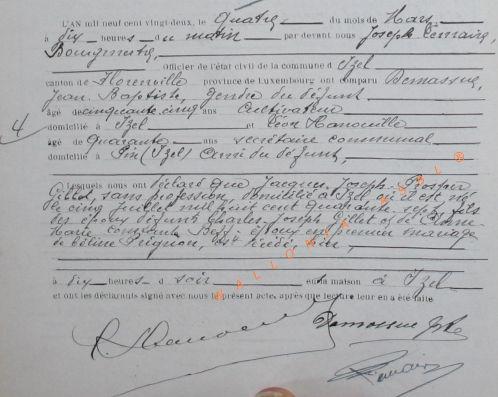 L'AN mil neuf cent vingt-deux, le Quatre du mois de Mars
à dix heures du matin par devant nous Joseph Lemaire,
Bourgmestre,
officier de l'état civil de la commune d' Izel
canton de Florenville province de Luxembourg ont comparu Demassue,
Jean Baptiste, gendre du défunt
âgé de cinquante cinq ans cultivateur
4
domicilié à Izel et Léon Hanouille
âgé de Quarante ans secrétaire communal
domicilié à Pin (Izel) ami du défunt,
Lesquels nous ont déclaré que Jacques Joseph Prosper
Gillet, sans profession, domicilié à Izel où il est né
le cinq juillet mil huit cent quarante fils
des époux défunts Charles Joseph Gillet et de
Marie époux en premier mariage
de Céline Pierrard, est décédé hier,
à dix heures d soir en sa maison à Izel
et ont les déclarants signé avec nous le présent acte, après que lecture leur en a été faite
WALLONIA ASBL ®